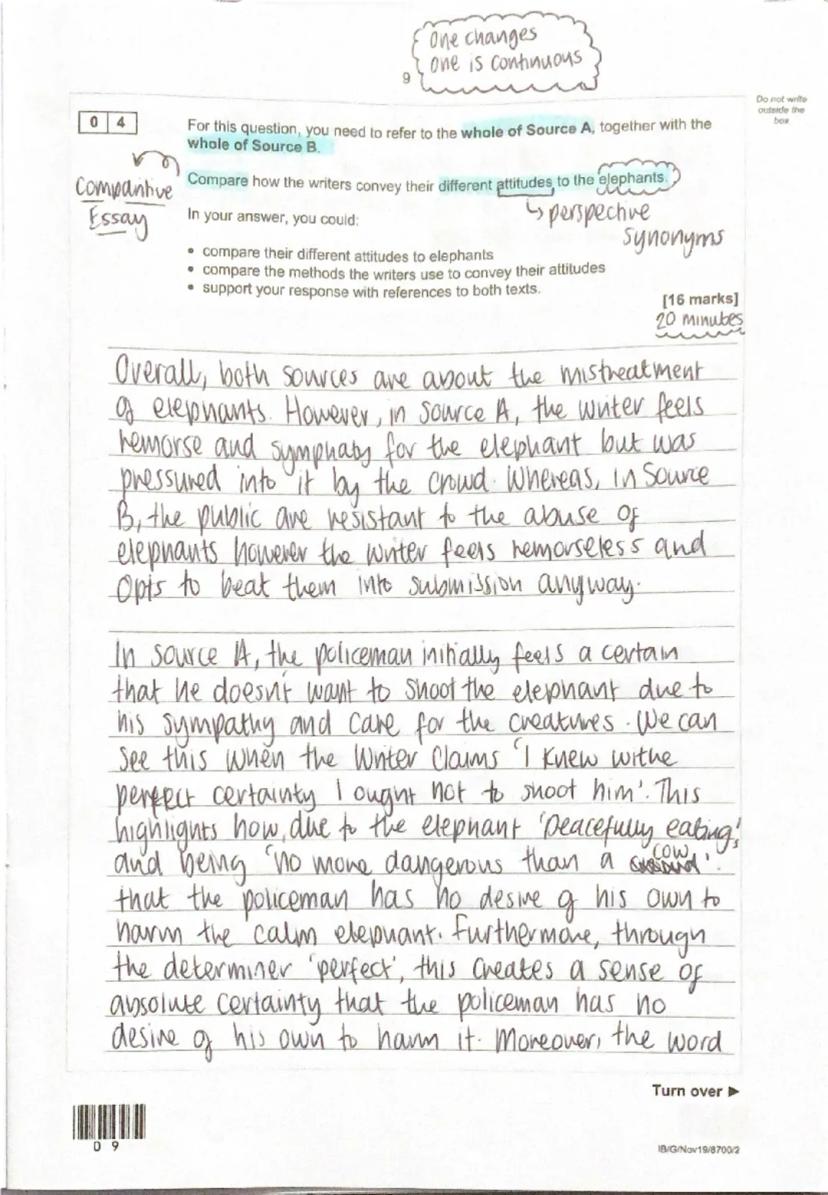 One changes
One is continuous
9
Do not write
outside the
box
0 4
For this question, you need to refer to the whole of Source A, together with the
whole of Source B.
Comparitive
Essay
Compare how the writers convey their different attitudes to the elephants.
↳ perspective
synonyms
In your answer, you could:
• compare their different attitudes to elephants
• compare the methods the writers use to convey their attitudes
• support your response with references to both texts.
[16 marks]
20 minutes
Overall, both sources are about the mistreatment
of elephants. However, in source A, the writer feels
remorse and symphaty for the elephant but was
pressured into it by the crowd. Whereas, in Source
B, the public are resistant to the abuse of
elephants however the writer feels remorseless and
opts to beat them into submission anyway.
In source A, the policeman initially feels a certain
that he doesn't want to shoot the elephant due to
his sympathy and care for the creatures. We can
see this when the writer claims 'I knew withe
perfect certainty I ought not to shoot him'. This
highlights how, due to the elephant 'peacefully eating',
and being 'no more dangerous than a cow'.
that the policeman has no desire of his own to
harm the calm elephant. Furthermore, through
the determiner 'perfect', this creates a sense of
absolute certainty that the policeman has no
desire of his own to harm it. Moreover, the word
Turn over ►
0 9
IB/G/Nov19/8700/2